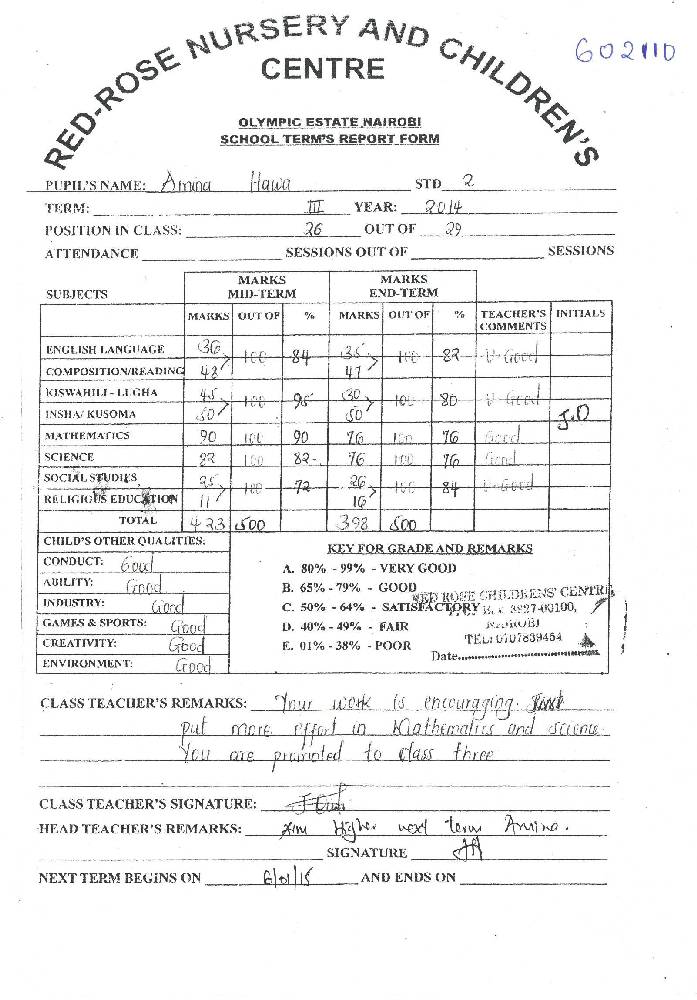 RED-ROSE NURSERY AND CHILDREN'S
CENTRE
602110
OLYMPIC ESTATE NAIROBI
SCHOOL TERM'S REPORT FORM
PUPIL'S NAME: Amina Hawa STD 2
TERM: III YEAR: 2014
POSITION IN CLASS: 26 OUT OF 29
ATTENDANCE SESSIONS OUT OF SESSIONS
SUBJECTS MARKS MID-TERM MARKS END-TERM
MARKS OUT OF % MARKS OUT OF % TEACHER'S COMMENTS INITIALS
ENGLISH LANGUAGE 36 100 84 35 100 82 V-Good
COMPOSITION/READING 48 47
KISWAHILI - LUGHA 45 100 95 30 100 80 V-Good
INSHA/ KUSOMA 50 50 J.O
MATHEMATICS 90 100 90 76 100 76 Good
SCIENCE 82 100 82 76 100 76 Good
SOCIAL STUDIES 25 100 72 26 100 84 V-Good
RELIGIOUS EDUCATION 11 16
TOTAL 423 500 398 500
CHILD'S OTHER QUALITIES:
CONDUCT: Good
ABILITY: Good
INDUSTRY: Good
GAMES & SPORTS: Good
CREATIVITY: Good
ENVIRONMENT: Good
KEY FOR GRADE AND REMARKS
A. 80% - 99% - VERY GOOD
B. 65% - 79% - GOOD
C. 50% - 64% - SATISFACTORY
D. 40% - 49% - FAIR
E. 01% - 38% - POOR
RED ROSE CHILDRENS' CENTRE
3927-00100,
NAIROBI
TEL: 0707839454
Date
CLASS TEACHER'S REMARKS: Your work is encouraging. Just
put more effort in Mathematics and science.
You are promoted to class three
CLASS TEACHER'S SIGNATURE:
HEAD TEACHER'S REMARKS: Aim Higher next term Amina.
SIGNATURE
NEXT TERM BEGINS ON 6/01/15 AND ENDS ON